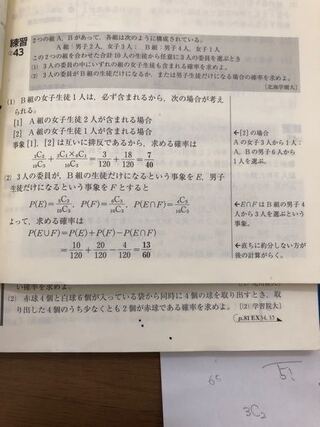 練習
②43
2つの組A，Bがあって，各組は次のように構成されている。
A組：男子2人，女子3人； B組：男子4人，女子1人
この2つの組を合わせた合計10人の生徒から任意に3人の委員を選ぶとき
(1) 3人の委員の中にいずれの組の女子生徒も含まれる確率を求めよ。
(2) 3人の委員がB組の生徒だけになるか，または男子生徒だけになる確率を求めよ。
[北海学園大]
(1) B組の女子生徒1人は，必ず含まれるから，次の場合が考え
られる。
[1] A組の女子生徒2人が含まれる場合
[2] A組の女子生徒1人が含まれる場合
事象[1]，[2]は互いに排反であるから，求める確率は
₃C₂/₁₀C₃ + ₃C₁×₆C₁/₁₀C₃ = 3/120 + 18/120 = 7/40
←[2]の場合
Aの女子3人から1人；
A，Bの男子6人から
1人を選ぶ。
(2) 3人の委員が，B組の生徒だけになるという事象をE，男子
生徒だけになるという事象をFとすると
P(E)=₅C₃/₁₀C₃, P(F)=₆C₃/₁₀C₃, P(E∩F)=₄C₃/₁₀C₃
←E∩FはB組の男子4
人から3人を選ぶという
事象。
よって，求める確率は
P(E∪F)=P(E)+P(F)-P(E∩F)
=10/120+20/120-4/120=13/60
←直ちに約分しない方が
後の計算がらく。
い確率を求めよ。
(2) 赤球4個と白球6個が入っている袋から同時に4個の球を取り出すとき，取
り出した4個のうち少なくとも2個が赤球である確率を求めよ。
[(2) 学習院大]
p.81 EX34, 35
65
5!
3C2